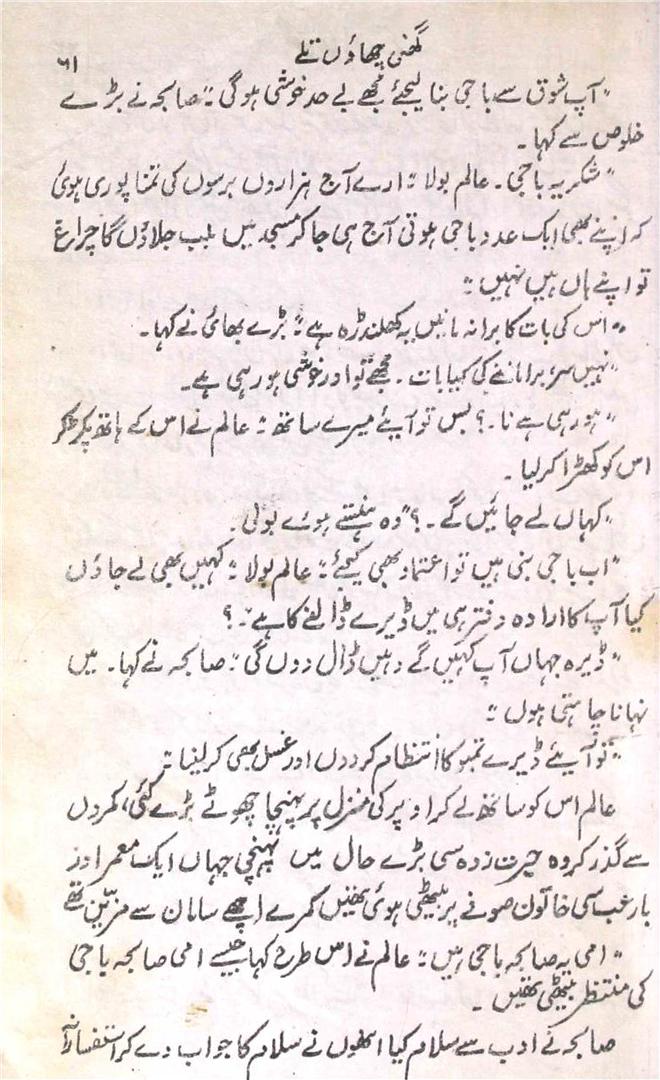 گھنی چھاؤں تلے
۶۱
"آپ شوق سے باجی بنا لیجئے مجھے بے حد خوشی ہوگی" صابحہ نے بڑے
خلوص سے کہا۔
"شکریہ باجی۔ عالم بولا" ارے آج ہزاروں برسوں کی تمنا پوری ہوئی
کہ اپنے بھی ایک عدد باجی ہوتی آج ہی جا کر مسجد میں بلب جلاؤں گا چراغ
تو اپنے ہاں ہیں نہیں"
"اس کی بات کا برا نہ مانیں یہ کھلنڈرہ ہے" بڑے بھائی نے کہا۔
"نہیں سر برا ماننے کی کیا بات۔ مجھے تو اور خوشی ہو رہی ہے۔
"ہو رہی ہے نا۔؟ بس تو آیئے میرے ساتھ" عالم نے اس کے ہاتھ پکڑ کر
اس کو کھڑا کر لیا۔
"کہاں لے جائیں گے۔؟" وہ ہنستے ہوئے بولی۔
"اب باجی بنی ہیں تو اعتماد بھی کیجئے" عالم بولا "کہیں بھی لے جاؤں
کیا آپ کا ارادہ دفتر ہی میں ڈیرے ڈالنے کا ہے"۔؟
"ڈیرہ جہاں آپ کہیں گے وہیں ڈال دوں گی" صابحہ نے کہا۔ میں
نہانا چاہتی ہوں"
"تو آیئے ڈیرے تمبو کا انتظام کر دوں اور غسل بھی کر لینا"
عالم اس کو ساتھ لے کر اوپر کی منزل پر پہنچا چھوٹے بڑے کئی، کمروں
سے گذر کر وہ حیرت زدہ سی بڑے حال میں پہنچی جہاں ایک معمر اور
بارعب سی خاتون صوفے پر بیٹھی ہوئی تھیں کمرے اچھے سامان سے مزیّن تھے
"امی یہ صابحہ باجی ہیں" عالم نے اس طرح کہا جیسے امی صابحہ باجی
کی منتظر بیٹھی تھیں۔
صابحہ نے ادب سے سلام کیا انھوں نے سلام کا جواب دے کر استفسارانہ